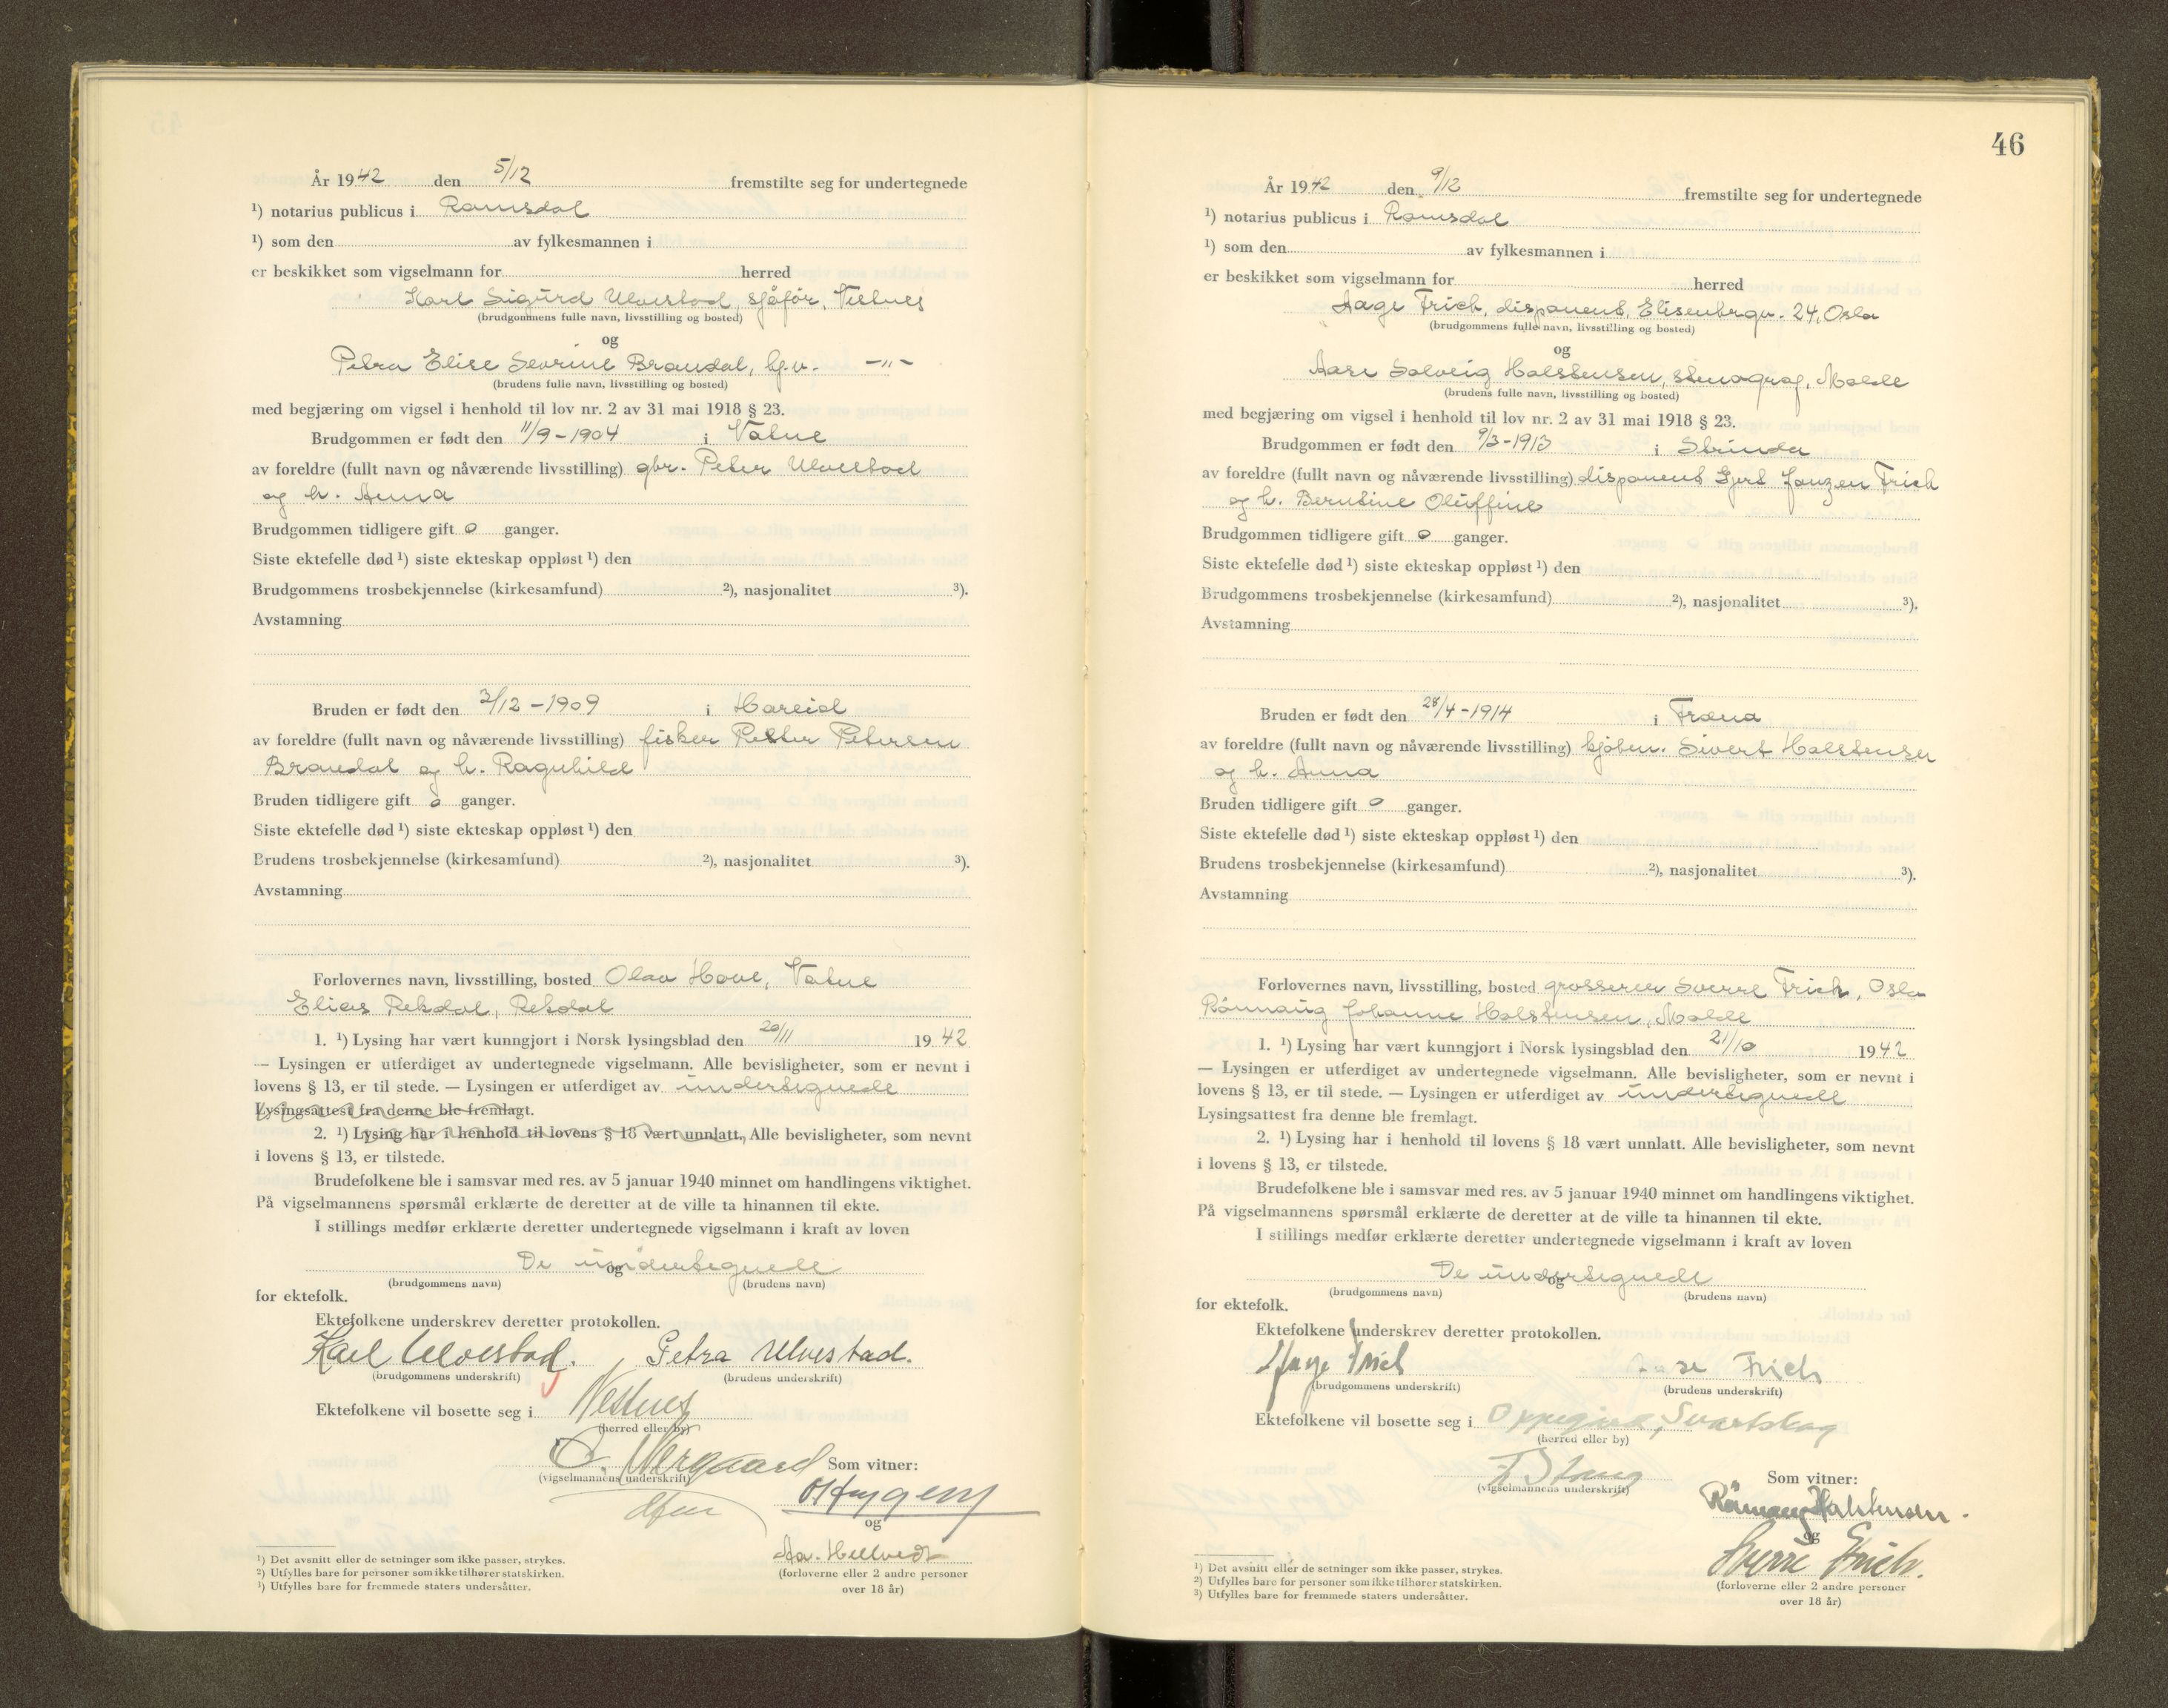 År 1942 den 5/12 fremstilte seg for undertegnede
¹) notarius publicus i Romsdal
¹) som den av fylkesmannen i
er beskikket som vigselmann for herred
Karl Sigurd Ulvestad, sjåfør, Vestnes
(brudgommens fulle navn, livsstilling og bosted)
og
Petra Elise Sevrine Brandal, hj.v. -"-
(brudens fulle navn, livsstilling og bosted)
med begjæring om vigsel i henhold til lov nr. 2 av 31 mai 1918 § 23.
Brudgommen er født den 11/9-1904 i Vatne
av foreldre (fullt navn og nåværende livsstilling) gbr. Peter Ulvestad
og h. Anna
Brudgommen tidligere gift 0 ganger.
Siste ektefelle død ¹) siste ekteskap oppløst ¹) den
Brudgommens trosbekjennelse (kirkesamfund) ²), nasjonalitet ³).
Avstamning
Bruden er født den 2/12-1909 i Hareid
av foreldre (fullt navn og nåværende livsstilling) fisker Petter Petersen
Brandal og h. Ragnhild
Bruden tidligere gift 0 ganger.
Siste ektefelle død ¹) siste ekteskap oppløst ¹) den
Brudens trosbekjennelse (kirkesamfund) ²), nasjonalitet ³).
Avstamning
Forlovernes navn, livsstilling, bosted Olav Hove, Vatne
Elias Rekdal, Rekdal
1. ¹) Lysing har vært kunngjort i Norsk lysingsblad den 20/11 1942
— Lysingen er utferdiget av undertegnede vigselmann. Alle bevisligheter, som er nevnt i
lovens § 13, er til stede. — Lysingen er utferdiget av undertegnede
Lysingsattest fra denne ble fremlagt.
2. ¹) Lysing har i henhold til lovens § 18 vært unnlatt. Alle bevisligheter, som nevnt
i lovens § 13, er tilstede.
Brudefolkene ble i samsvar med res. av 5 januar 1940 minnet om handlingens viktighet.
På vigselmannens spørsmål erklærte de deretter at de ville ta hinannen til ekte.
I stillings medfør erklærte deretter undertegnede vigselmann i kraft av loven
De undertegnede
og
(brudgommens navn) (brudens navn)
for ektefolk.
Ektefolkene underskrev deretter protokollen.
Karl Ulvestad. Petra Ulvestad.
(brudgommens underskrift) (brudens underskrift)
Ektefolkene vil bosette seg i Vestnes
(herred eller by)
Som vitner:
(vigselmannens underskrift)
og
Aa. Hellvedt
(forloverne eller 2 andre personer
over 18 år)
¹) Det avsnitt eller de setninger som ikke passer, strykes.
²) Utfylles bare for personer som ikke tilhører statskirken.
³) Utfylles bare for fremmede staters undersåtter.
46
År 1942 den 9/12 fremstilte seg for undertegnede
¹) notarius publicus i Romsdal
¹) som den av fylkesmannen i
er beskikket som vigselmann for herred
Aage Frich, disponent, Elisenbergv. 24, Oslo
(brudgommens fulle navn, livsstilling og bosted)
og
Aase Solveig Halstensen, stenograf, Molde
(brudens fulle navn, livsstilling og bosted)
med begjæring om vigsel i henhold til lov nr. 2 av 31 mai 1918 § 23.
Brudgommen er født den 9/3-1913 i Strinda
av foreldre (fullt navn og nåværende livsstilling) disponent Gjert Janzen Frich
og h. Berntine Oluffine
Brudgommen tidligere gift 0 ganger.
Siste ektefelle død ¹) siste ekteskap oppløst ¹) den
Brudgommens trosbekjennelse (kirkesamfund) ²), nasjonalitet ³).
Avstamning
Bruden er født den 28/4-1914 i Fræna
av foreldre (fullt navn og nåværende livsstilling) kjøbm. Sivert Halstensen
og h. Anna
Bruden tidligere gift 0 ganger.
Siste ektefelle død ¹) siste ekteskap oppløst ¹) den
Brudens trosbekjennelse (kirkesamfund) ²), nasjonalitet ³).
Avstamning
Forlovernes navn, livsstilling, bosted grosserer Sverre Frich, Oslo
Rönnaug Johanne Halstensen, Molde
1. ¹) Lysing har vært kunngjort i Norsk lysingsblad den 21/10 1942
— Lysingen er utferdiget av undertegnede vigselmann. Alle bevisligheter, som er nevnt i
lovens § 13, er til stede. — Lysingen er utferdiget av undertegnede
Lysingsattest fra denne ble fremlagt.
2. ¹) Lysing har i henhold til lovens § 18 vært unnlatt. Alle bevisligheter, som nevnt
i lovens § 13, er tilstede.
Brudefolkene ble i samsvar med res. av 5 januar 1940 minnet om handlingens viktighet.
På vigselmannens spørsmål erklærte de deretter at de ville ta hinannen til ekte.
I stillings medfør erklærte deretter undertegnede vigselmann i kraft av loven
De undertegnede
og
(brudgommens navn) (brudens navn)
for ektefolk.
Ektefolkene underskrev deretter protokollen.
Aage Frich Aase Frich
(brudgommens underskrift) (brudens underskrift)
Ektefolkene vil bosette seg i Oppegård, Svartskog
(herred eller by)
Som vitner:
(vigselmannens underskrift)
Rönnaug Halstensen.
og
Sverre Frich.
(forloverne eller 2 andre personer
over 18 år)
¹) Det avsnitt eller de setninger som ikke passer, strykes.
²) Utfylles bare for personer som ikke tilhører statskirken.
³) Utfylles bare for fremmede staters undersåtter.